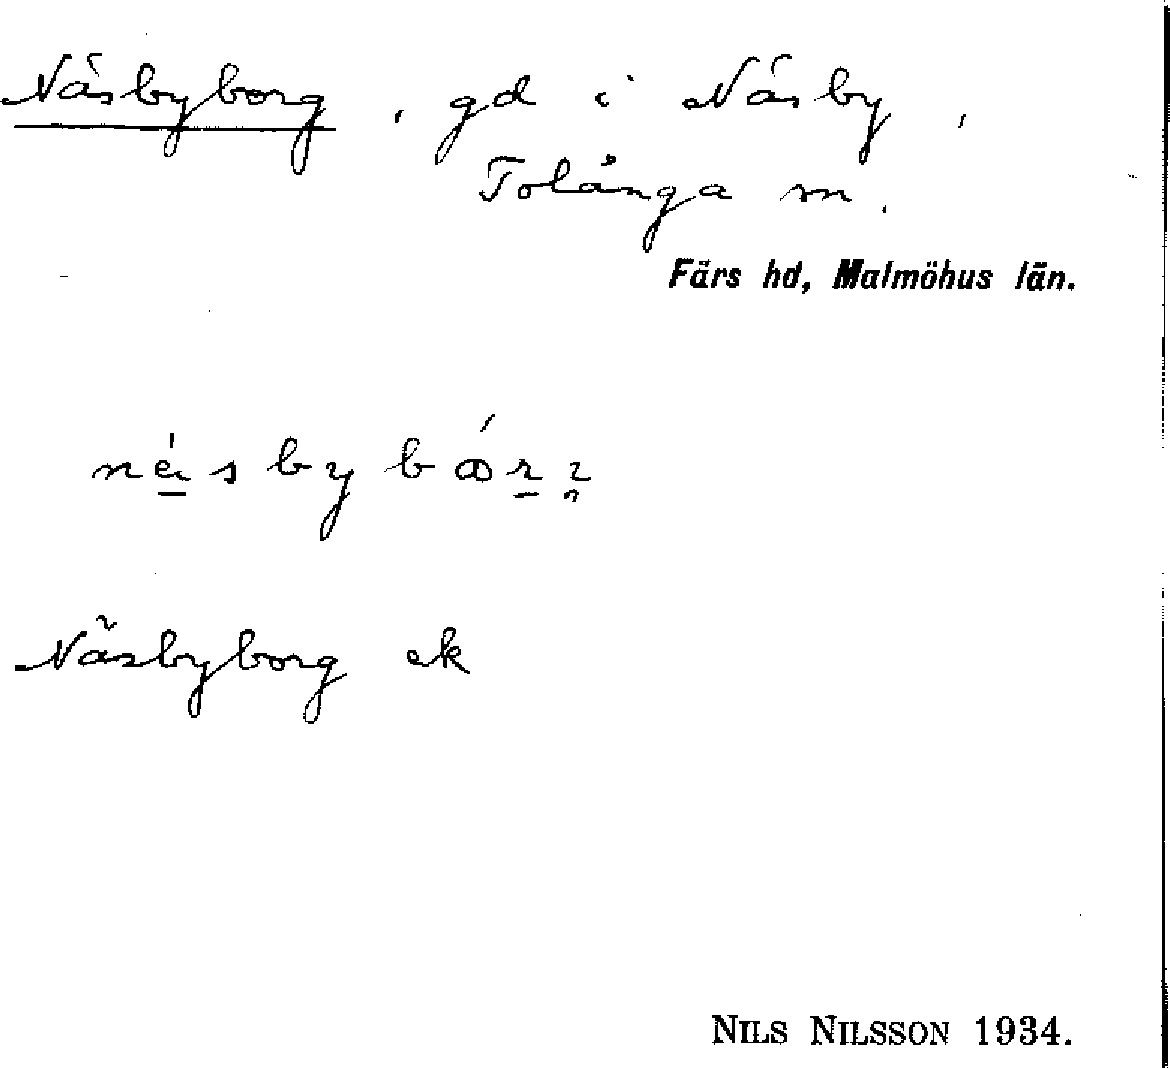 Näsbyborg, gd i Näsby,
Tolånga sn.
Färs hd, Malmöhus län.
Näsbyborg ek
NILS NILSSON 1934.